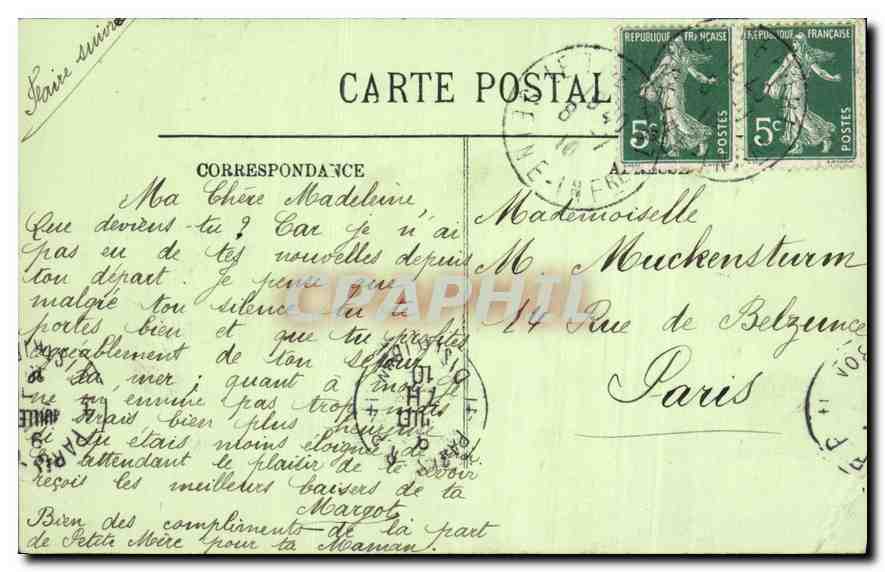 Faire suivre
CARTE POSTAL
REPUBLIQUE FRANÇAISE
5c
POSTES
REPUBLIQUE FRANÇAISE
5c
POSTES
CORRESPONDANCE
Ma Chère Madeleine,
Que deviens-tu? Car je n'ai
pas eu de tes nouvelles depuis
ton départ. Je pense que
malgré ton silence tu te
portes bien et que tu profites
agréablement de ton séjour
à la mer; quant à moi je
ne m'ennuie pas trop mais
je serais bien plus heureuse
si tu étais moins éloignée de
attendant le plaisir de te revoir
reçois les meilleurs baisers de ta
Margot
Bien des compliments de la part
de Petite Mère pour ta Maman.
Mademoiselle
M Muckensturm
14 Rue de Belzunce
Paris
CPAPHIL